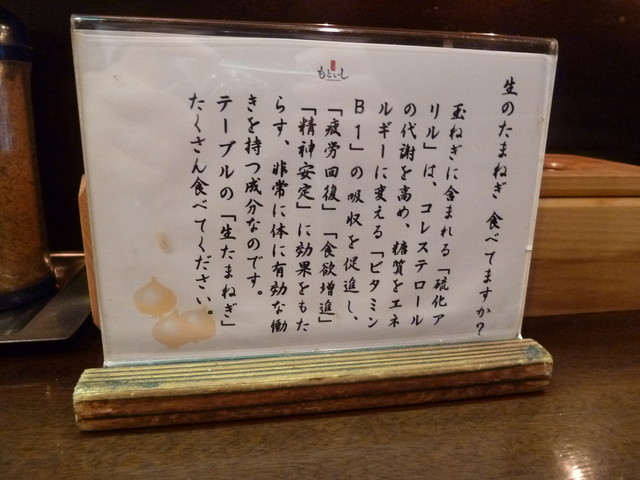 もといし
生のたまねぎ 食べてますか?
玉ねぎに含まれる「硫化ア
リル」は、コレステロール
の代謝を高め、糖質をエネ
ルギーに変える「ビタミン
B1」の吸収を促進し、
「疲労回復」「食欲増進」
「精神安定」に効果をもた
らす、非常に体に有効な働
きを持つ成分なのです。
テーブルの「生たまねぎ」
たくさん食べてください。